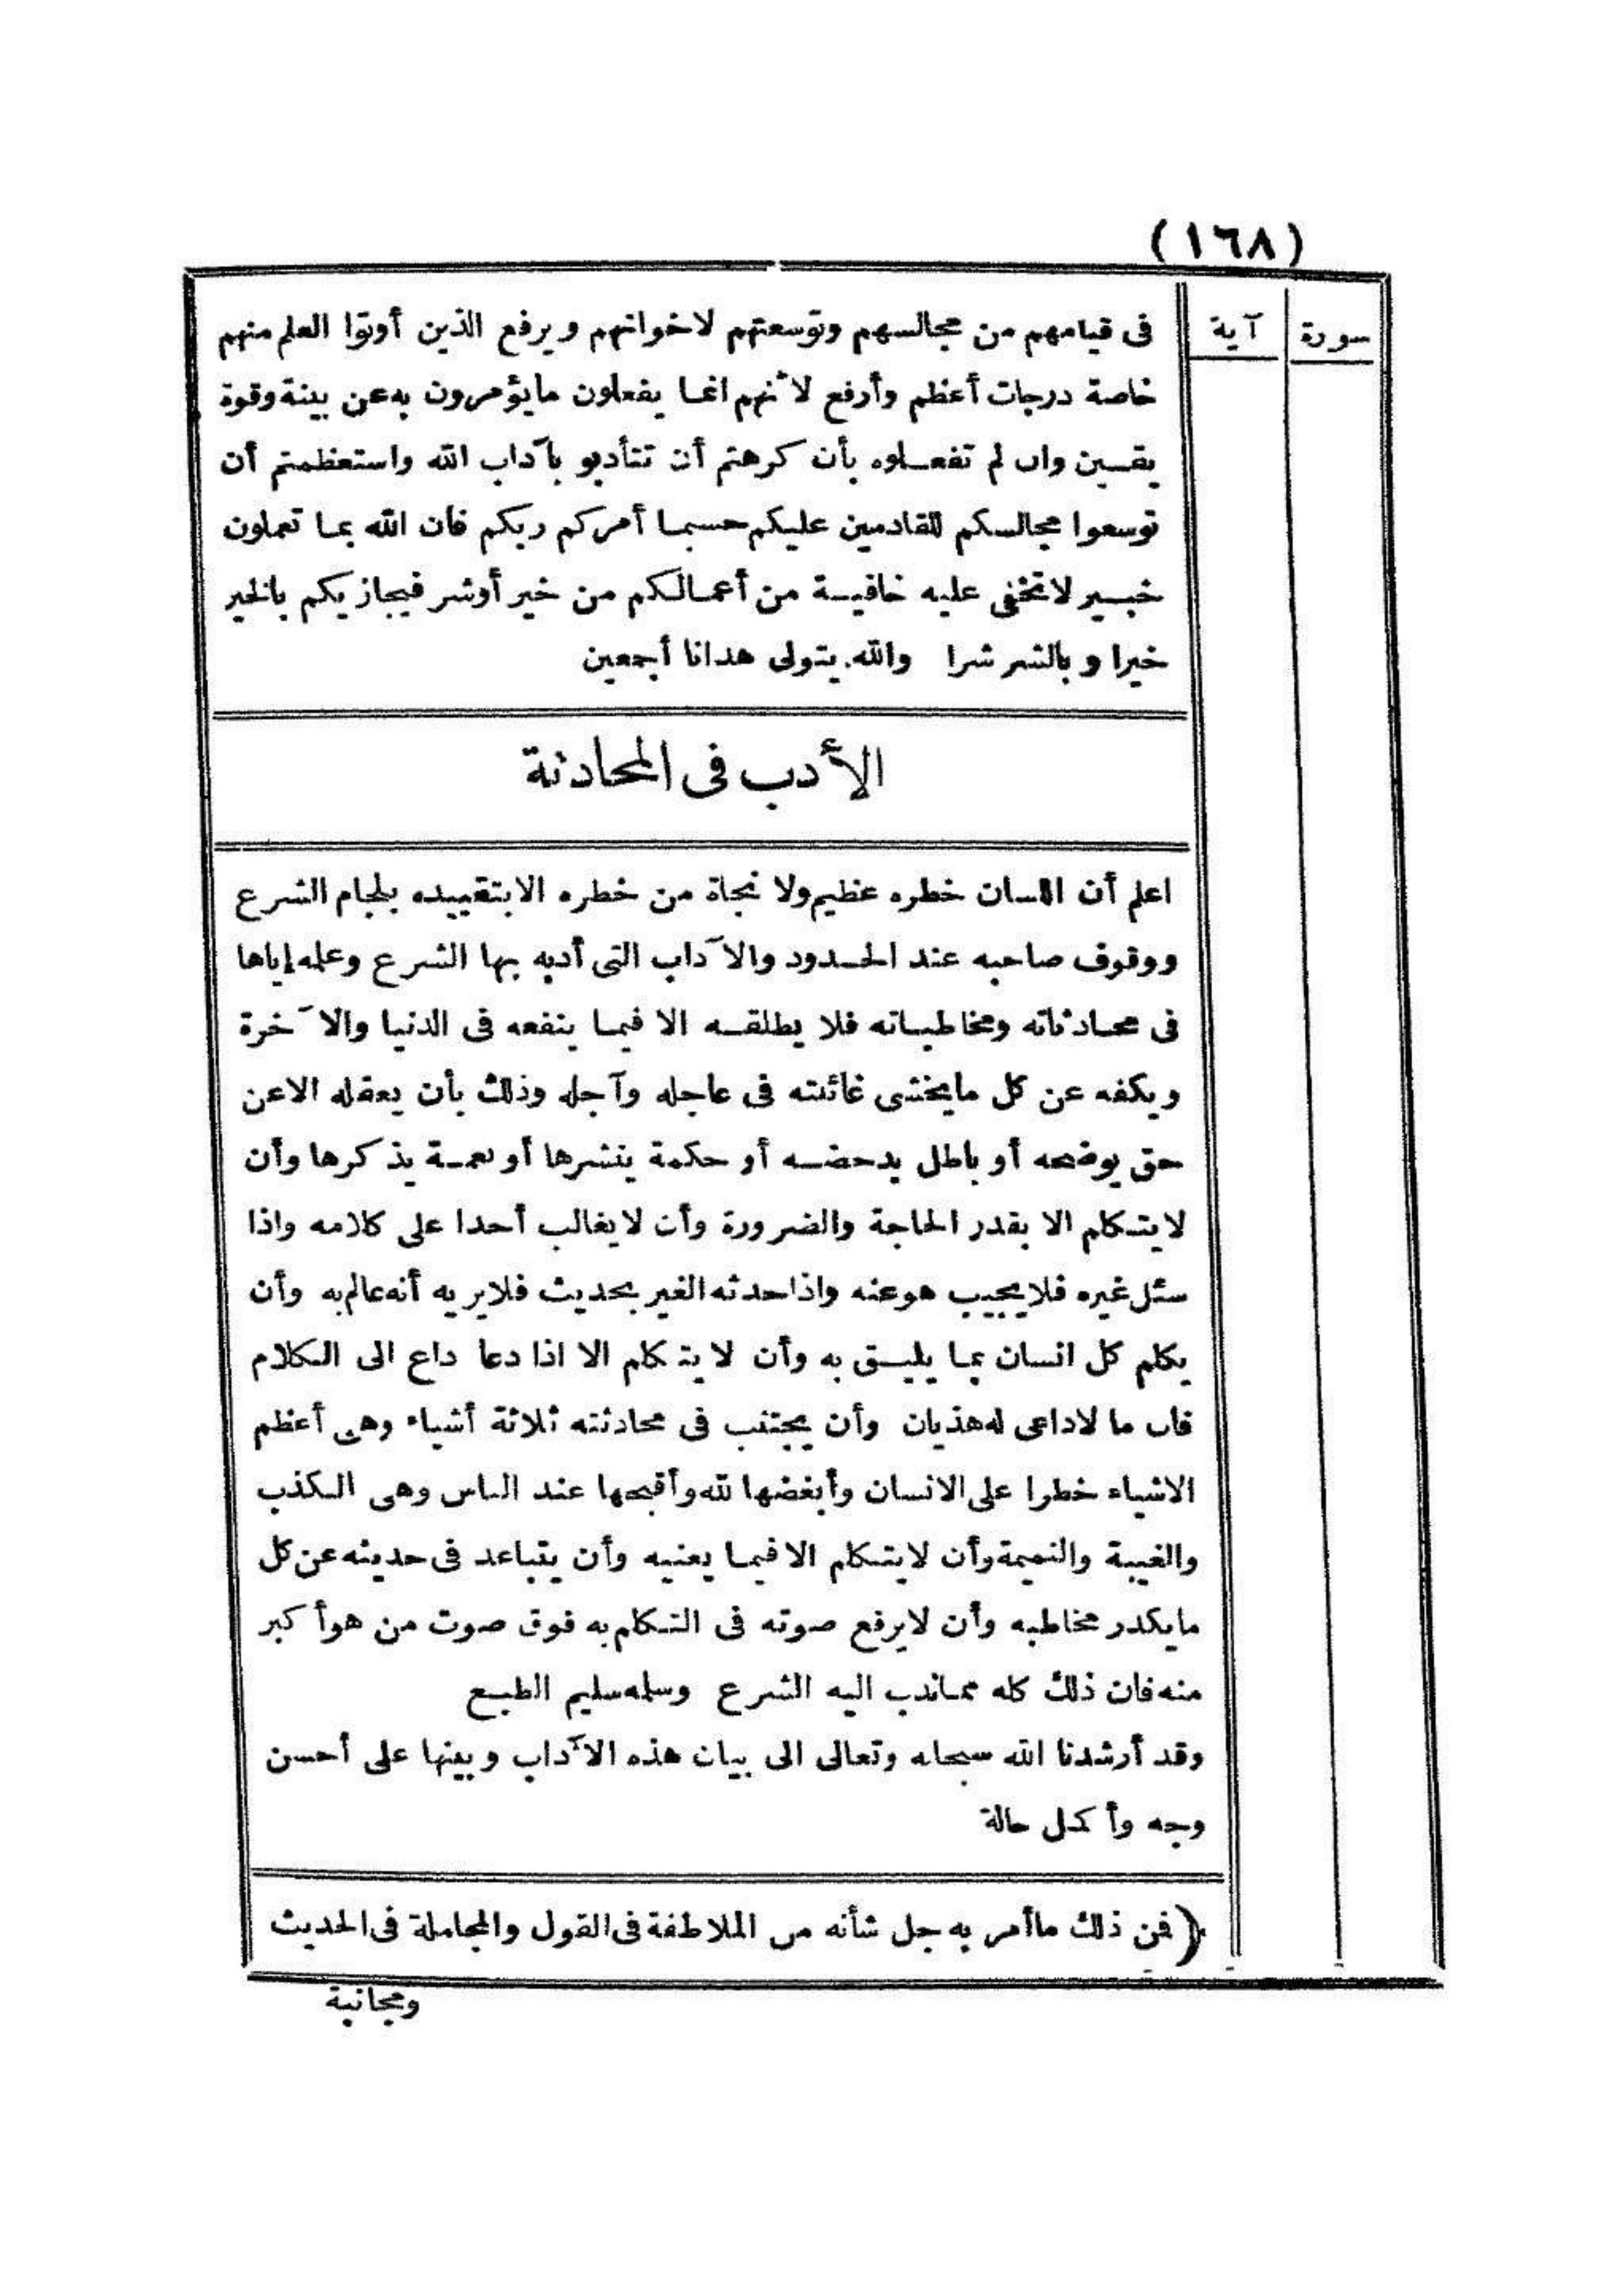 (١٦٨)
سورة
آية
فى قيامهم من مجالسهم وتوسعتهم لاخوانهم ويرفع الذين أوتوا العلم منهم
خاصة درجات أعظم وأرفع لأنهم انما يفعلون ما يؤمرون به عن بينة وقوة
يقين وان لم تفعلوه بأن كرهتم أن تتأدبو بآداب الله واستعظمتم أن
توسعوا مجالسكم للقادمين عليكم حسبما أمركم ربكم فان الله بما تعملون
خبير لا تخفى عليه خافية من أعمالكم من خير أوشر فيجازيكم بالخير
خيرا و بالشر شرا والله يتولى هدانا أجمعين
الأدب فى المحادثة
اعلم أن اللسان خطره عظيم ولا نجاة من خطره الا بتقييده بلجام الشرع
ووقوف صاحبه عند الحدود والآداب التى أدبه بها الشرع وعلمه إياها
فى محادثاته ومخاطباته فلا يطلقه الا فيما ينفعه فى الدنيا والآخرة
ويكفه عن كل ما يخشى غائلته فى عاجله وآجله وذلك بأن يعقله الا عن
حق يوضحه أو باطل يدحضه أو حكمة ينشرها أو نعمة يذكرها وأن
لا يتكلم الا بقدر الحاجة والضرورة وأن لا يغالب أحدا على كلامه واذا
سئل غيره فلا يجيب هو عنه واذا حدثه الغير بحديث فلا يريه أنه عالم به وأن
يكلم كل انسان بما يليق به وأن لا يتكلم الا اذا دعا داع الى الكلام
فان ما لا داعى له هذيان وأن يجتنب فى محادثته ثلاثة أشياء وهى أعظم
الاشياء خطرا على الانسان وأبغضها لله وأقبحها عند الناس وهى الكذب
والغيبة والنميمة وأن لا يتكلم الا فيما يعنيه وأن يتباعد فى حديثه عن كل
ما يكدر مخاطبه وأن لا يرفع صوته فى التكلم به فوق صوت من هو أكبر
منه فان ذلك كله مما ندب اليه الشرع وسلمه سليم الطبع
وقد أرشدنا الله سبحانه وتعالى الى بيان هذه الآداب وبينها على أحسن
وجه وأكمل حالة
﴿فمن ذلك ما أمر به جل شأنه من الملاطفة فى القول والمجاملة فى الحديث
ومجانبة